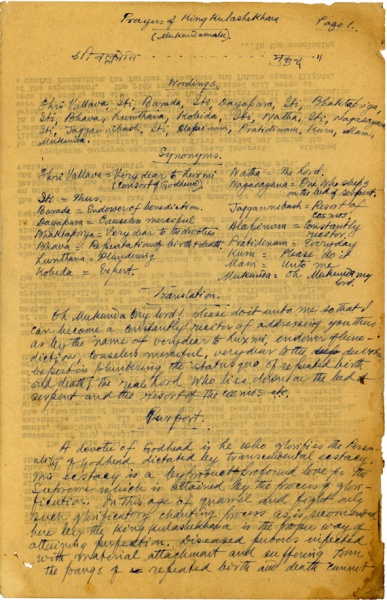 Prayers of King Kulashekhara
Page 1.
(Mukundamala)
Wordings.
Shri Vallava, Iti, Barada, Iti, Dayapara, Iti, Bhaktapriya,
Iti, Bhava, Lunthana, Kobida, Iti, Natha, Iti, Nagasayana
Iti, Jagannibash, Iti, Alapinam, Pratidinam, Kuru, Mam,
Mukunda.
Synonyms.
Shri Vallava = Very dear to Luxmi
(Consort of Godhead)
Iti = Thus.
Barada = Endower of benediction.
Dayapara = Causeless merciful
Bhaktapriya = Very dear to the devotees
Bhava = Repeatation of birth & death.
Lunthana = Plundering
Kobida = Expert.
Natha = The Lord.
Nagasayana = One who sleeps
on the bed of serpent.
Jagannibash = Resort of
cosmos.
Alapinam = Constantly
recitor.
Pratidinam = Everyday
Kuru = Please do it
Mam = Unto me
Mukunda = Oh Mukunda my
Lord.
Translation.
Oh Mukunda My Lord! Please do it unto me so that I
can become a constantly recitor of addressing you thus
as by the name of very dear to Luxmi, endower of bene-
diction, causeless merciful, very dear to the devotee
expert in plundering the status quo of repeated birth
and death, the real Lord who lies down on the bed of
serpent and the resort of the cosmos etc.
Purport.
A devotee of Godhead is he who glorifies the Perso-
nality of Godhead dictated by transcendental ecstacy.
This ecstacy is a byproduct of profound love for the
Supreme which is attained by the process of glori-
fication. In this age of quarrel and fight only
such glorificatory chanting process as is recommended
here by the King Kulashekhara is the proper way of
attaining perfection. Diseased persons infected
with material attachment and suffering from
the pangs of repeated birth and death cannot